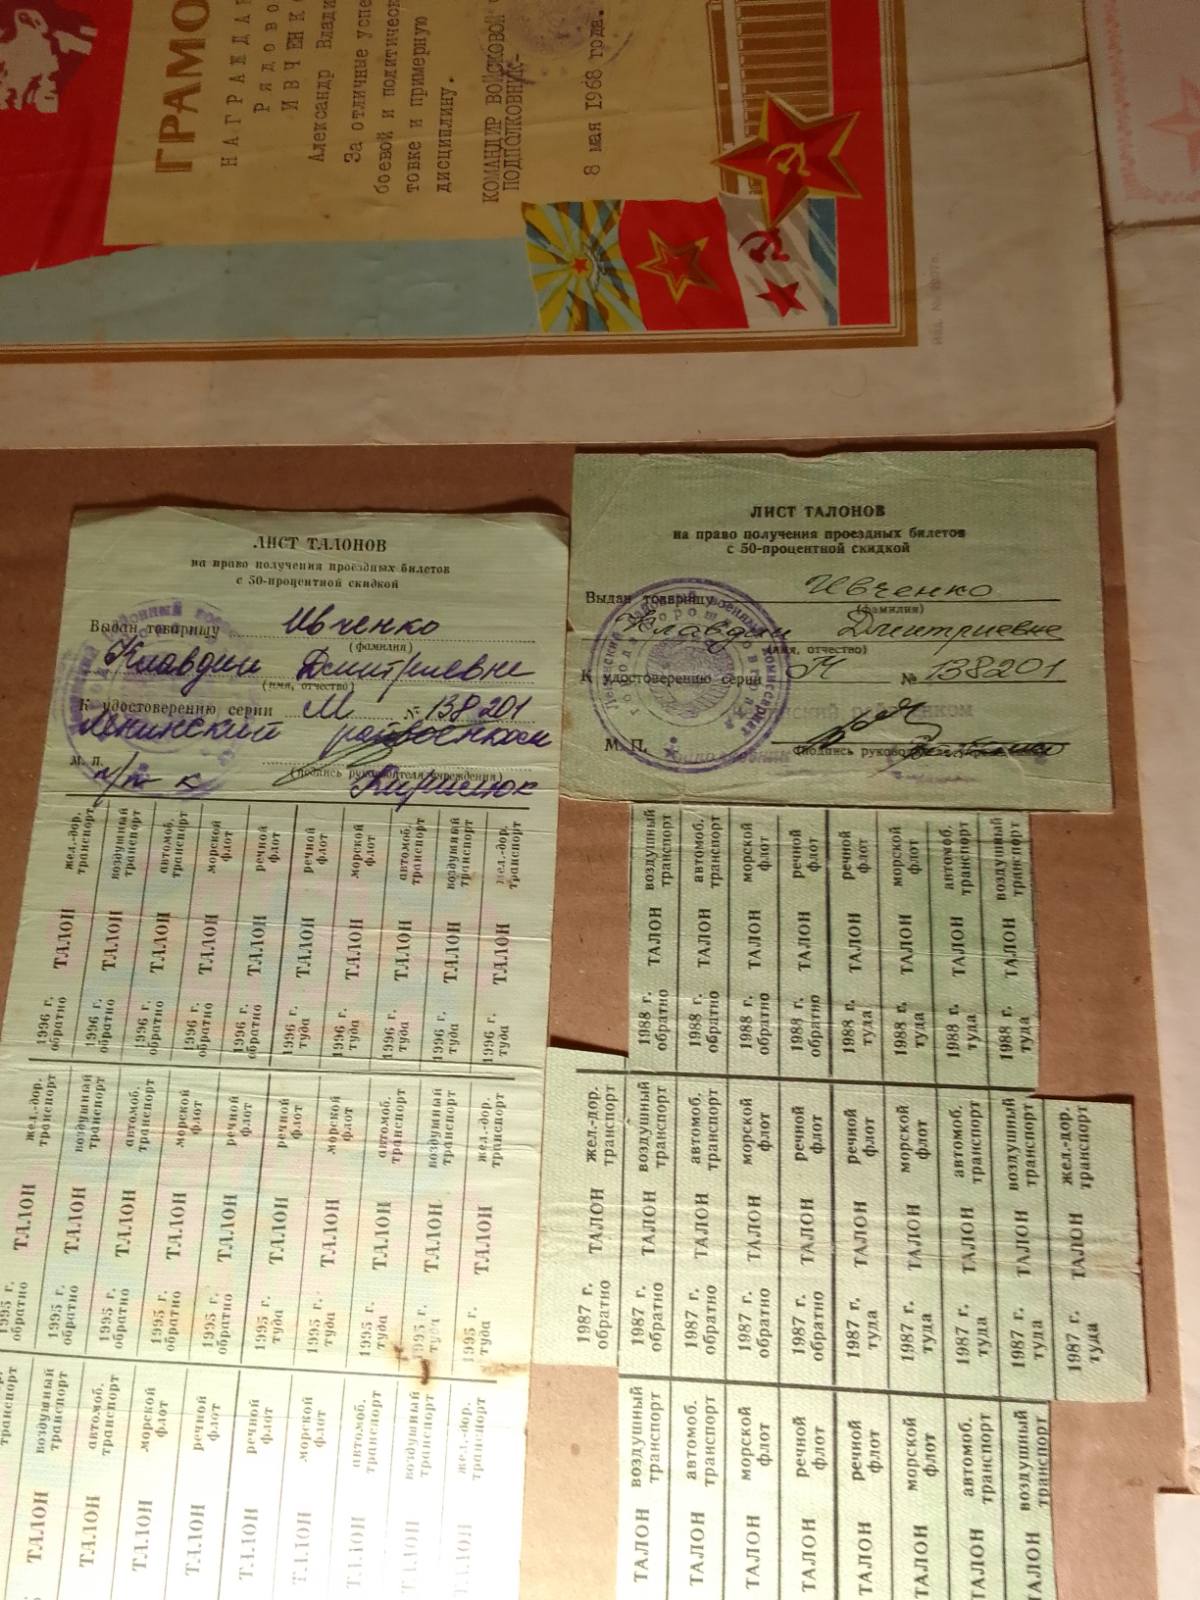 ГРАМО
НАГРАЖДАН
РЯДОВО
ИВЧЕНКО
Александр Влади
За отличные успе
боевой и политическ
товке и примерную
дисциплину.
КОМАНДИР ВОЙСКОВОЙ
ПОДПОЛКОВНИК-
8 мая 1968 года.
ЛИСТ ТАЛОНОВ
на право получения проездных билетов
с 50-процентной скидкой
Выдан товарищу Ивченко
(фамилия)
Клавдии Дмитриевне
(имя, отчество)
К удостоверению серии М № 138201
Ленинский райвоенком
М. П. (подпись руководителя учреждения)
п/п-к Кирилюк
жел.-дор. транспорт
воздушный транспорт
автомоб. транспорт
морской флот
речной флот
речной флот
морской флот
автомоб. транспорт
воздушный транспорт
жел.-дор. транспорт
ТАЛОН ТАЛОН ТАЛОН ТАЛОН ТАЛОН ТАЛОН ТАЛОН ТАЛОН ТАЛОН ТАЛОН
1996 г. обратно
1996 г. обратно
1996 г. обратно
1996 г. обратно
1996 г. обратно
1996 г. туда
1996 г. туда
1996 г. туда
1996 г. туда
1996 г. туда
жел.-дор. транспорт
воздушный транспорт
автомоб. транспорт
морской флот
речной флот
речной флот
морской флот
автомоб. транспорт
воздушный транспорт
жел.-дор. транспорт
ТАЛОН ТАЛОН ТАЛОН ТАЛОН ТАЛОН ТАЛОН ТАЛОН ТАЛОН ТАЛОН ТАЛОН
1995 г. обратно
1995 г. обратно
1995 г. обратно
1995 г. обратно
1995 г. обратно
1995 г. туда
1995 г. туда
1995 г. туда
1995 г. туда
1995 г. туда
транспорт
воздушный транспорт
автомоб. транспорт
морской флот
речной флот
речной флот
морской флот
автомоб. транспорт
воздушный транспорт
жел.-дор. транспорт
ТАЛОН ТАЛОН ТАЛОН ТАЛОН ТАЛОН ТАЛОН ТАЛОН ТАЛОН ТАЛОН
ЛИСТ ТАЛОНОВ
на право получения проездных билетов
с 50-процентной скидкой
Выдан товарищу Ивченко
(фамилия)
Клавдии Дмитриевне
(имя, отчество)
К удостоверению серии М № 138201
М. П.
воздушный транспорт
автомоб. транспорт
морской флот
речной флот
речной флот
морской флот
автомоб. транспорт
воздушный транспорт
ТАЛОН ТАЛОН ТАЛОН ТАЛОН ТАЛОН ТАЛОН ТАЛОН ТАЛОН
1988 г. обратно
1988 г. обратно
1988 г. обратно
1988 г. обратно
1988 г. туда
1988 г. туда
1988 г. туда
1988 г. туда
жел.-дор. транспорт
воздушный транспорт
автомоб. транспорт
морской флот
речной флот
речной флот
морской флот
автомоб. транспорт
воздушный транспорт
жел.-дор. транспорт
ТАЛОН ТАЛОН ТАЛОН ТАЛОН ТАЛОН ТАЛОН ТАЛОН ТАЛОН ТАЛОН ТАЛОН
1987 г. обратно
1987 г. обратно
1987 г. обратно
1987 г. обратно
1987 г. обратно
1987 г. туда
1987 г. туда
1987 г. туда
1987 г. туда
1987 г. туда
воздушный транспорт
автомоб. транспорт
морской флот
речной флот
речной флот
морской флот
автомоб. транспорт
воздушный транспорт
ТАЛОН ТАЛОН ТАЛОН ТАЛОН ТАЛОН ТАЛОН ТАЛОН ТАЛОН